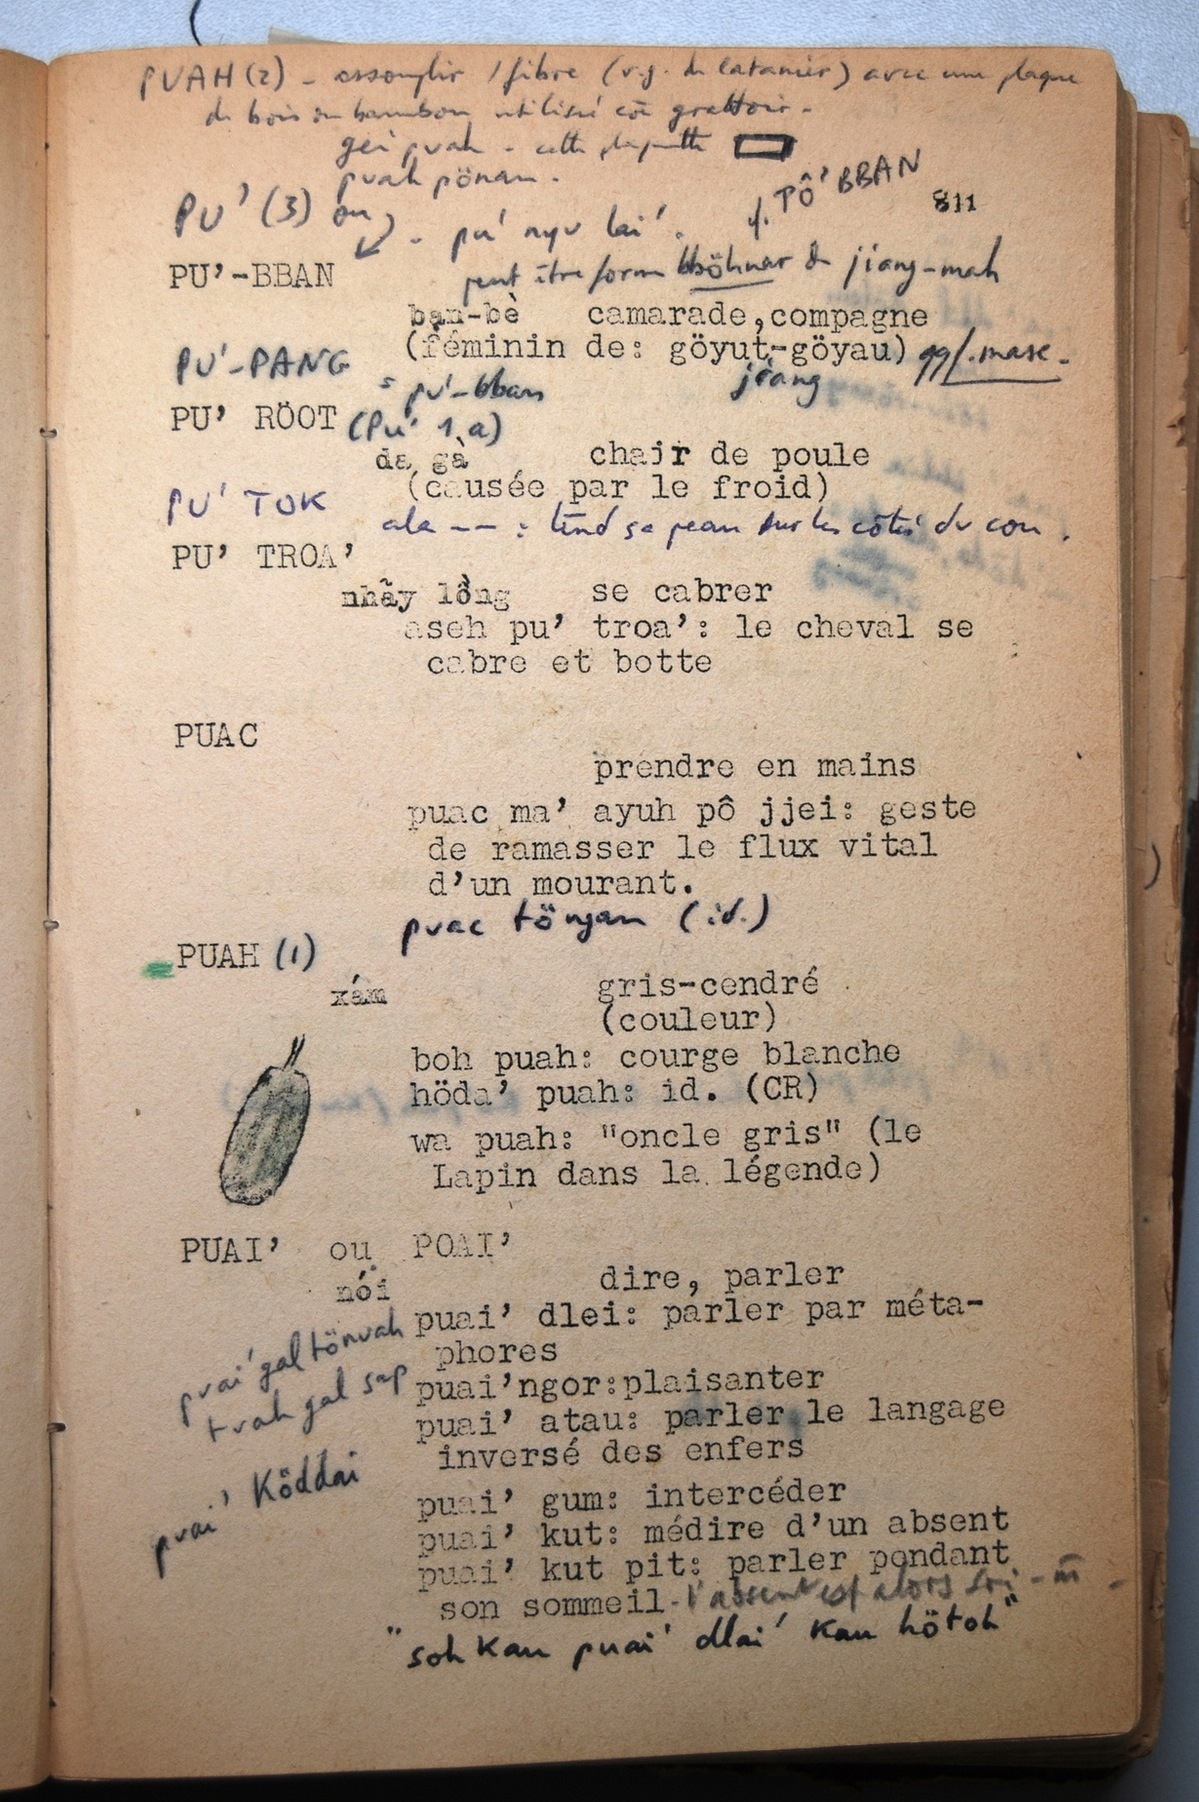 PUAH (2) - assouplir 1 fibre (v.g. de latanier) avec une plaque
de bois ou bambou utilisé cõ grattoir -
gei puah - cette plaquette
puah pönam.
PU' (3) ou
- pu' nyu lai'.
cf. PÔ' BBAN
811
PU'-BBAN
peut être forme bböhnar de jiang-mah
bạn-bè camarade,compagne
(féminin de: göyut-göyau) qqf. masc.
jiang
PU'-PANG
= pu'-bban
PU' RÖOT (Pu' 1,a)
da gà chair de poule
(causée par le froid)
PU' TOK
ala -- : tend sa peau sur les côtés du cou.
PU' TROA'
nhẫy lồng se cabrer
aseh pu' troa': le cheval se
cabre et botte
PUAC
prendre en mains
puac ma' ayuh pô jjei: geste
de ramasser le flux vital
d'un mourant.
puac töngan (id.)
PUAH (1)
xám gris-cendré
(couleur)
boh puah: courge blanche
höda' puah: id. (CR)
wa puah: "oncle gris" (le
Lapin dans la légende)
PUAI' ou POAI'
nói dire, parler
puai' dlei: parler par méta-
phores
puai' gal tönuah
puai'ngor:plaisanter
truah gal sap
puai' atau: parler le langage
inversé des enfers
puai' Köddai
puai' gum: intercéder
puai' kut: médire d'un absent
puai' kut pit: parler pendant
son sommeil - l'absent est alors soi-m̄ -
"soh kau puai' dlai' kau hötoh"